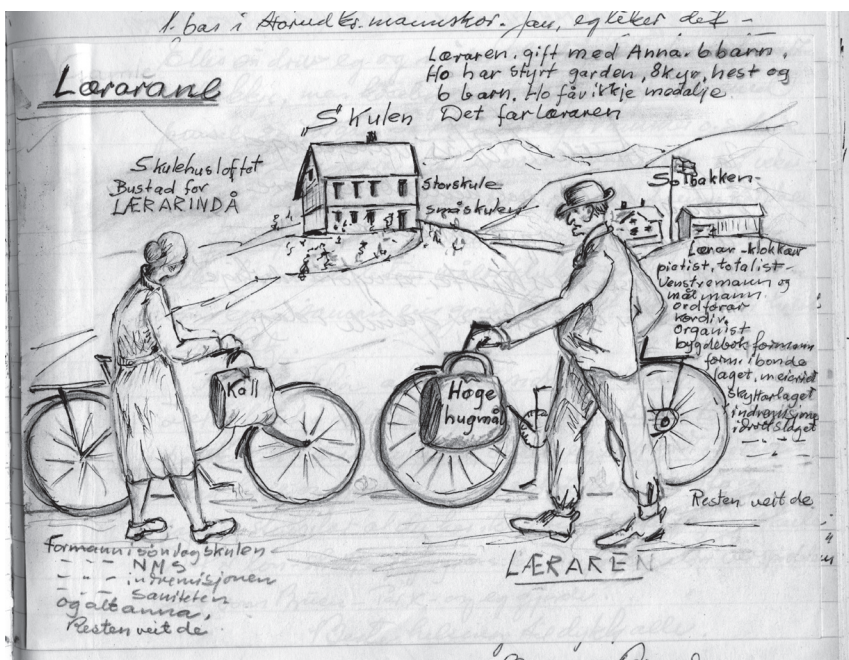 1. bas i mannskor. Jau, eg liker det -
Lærarane
Læraren, gift med Anna. 6 barn.
Ho har styrt garden, 8 kyr, hest og
6 barn. Ho får ikkje medalje.
Det får læraren
"Skulen
Skulehusloftet
Bustad for
LÆRARINDÅ
Storskule
småskulen
Solbakken-
Lærar - klokkar
pietist, totalist -
Venstremann og
målmann.
ordførar
kordir.
organist
bygdebok formann
form. i bonde
laget, meieriet
skyttarlaget
indremisjon
idrottslaget
- " - " -
Kall
Høge
hugmål
Resten veit de
LÆRAREN
Formann i søndagskulen
- " - NMS
- " - indremisjonen
- " - Sanikten
og alt anna,
Resten veit de